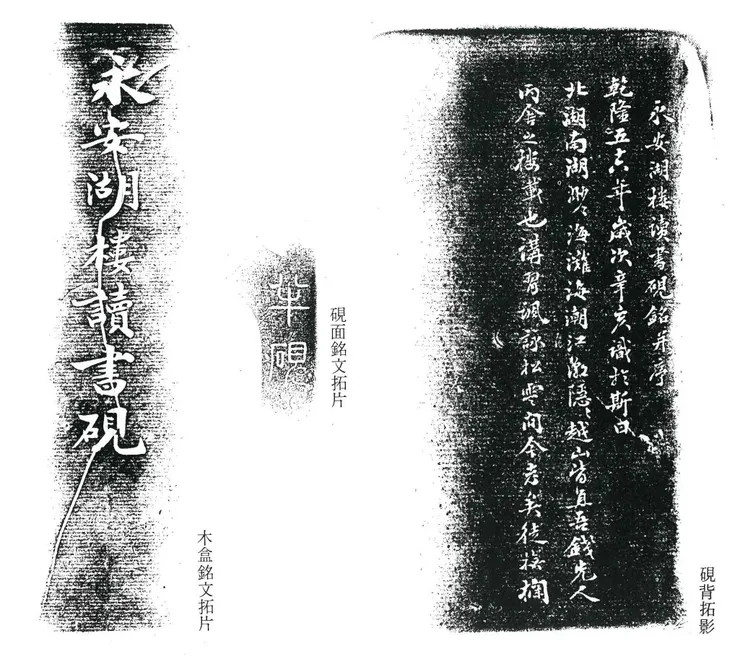 永安湖樓讀書硯銘并序
乾隆五六年歲次辛亥識於斯曰
北湖南湖渺々海灘海潮江激隱々越山皆直吾錢先人
丙舍之樓載也講習諷詠松雲間今老矣徒撫
硯背拓影
華硯
硯面銘文拓片
永安湖樓讀書硯
木盒銘文拓片